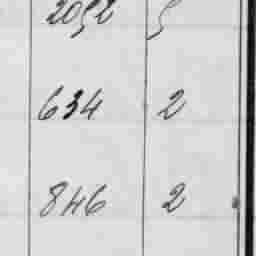 2052 5
634 2
846 2